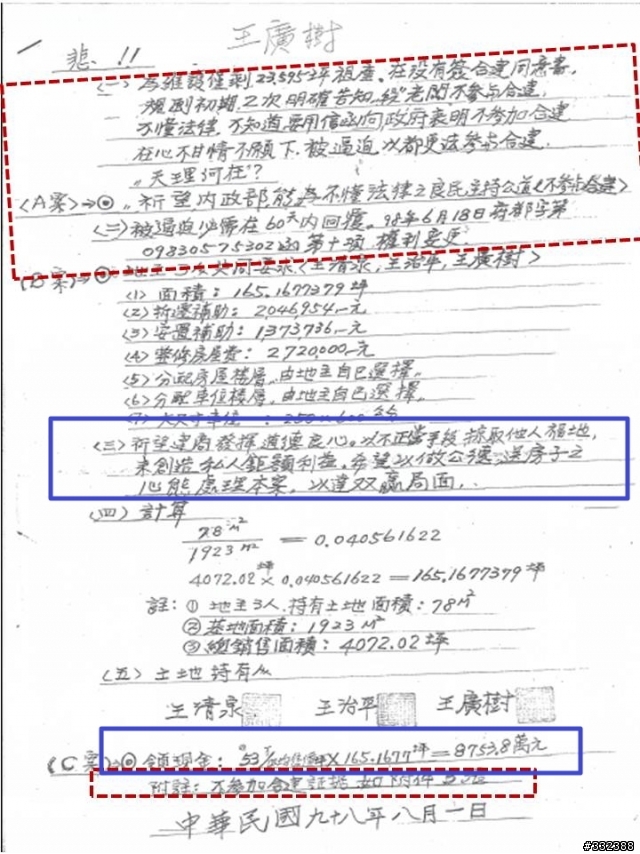 王廣樹
悲!!
<一> 為維護僅剩23.5952坪祖產,在沒有簽合建同意書,
規劃初期2次明確告知"老闆不參與合建,
不懂法律,不知道要用信函向政府表明不參加合建
在心不甘情不願下,被逼迫以都更法參與合建,
"天理何在"?
<A案>→⊙ 祈望內政部能為不懂法律之良民主持公道<不參與合建>
<二>被逼迫必需在60天內回覆。98年6月18日府都字第
09830575302函第十項 權利變更。
<B案>→⊙ 地主3人共同要求<王清泉,王治平,王廣樹>
<1> 面積:165.1677379坪
<2>拆遷補助:2,046,954元
<3>安置補助:1,373,736元
<4>整修房屋費:2,720,000元
<5>分配房屋樓層,由地主自己選擇。
<6>分配車位樓層,由地主自己選擇。
<三>祈望建商發揮道德良心。以不正當手段搾取他人福地,
來創造私人鉅額利益。希望以做公德,送房子之
心態處理本案,以達双贏局面。
<四>計算
78 M²
1923 M² = 0.040561622
4072.02坪×0.040561622=165.1677379坪
註:①地主3人持有土地面積:78M²
②基地面積:1923M²
③總銷售面積:4072.02坪
<五>土地持有人
王清泉 王治平 王廣樹
<C案>→⊙領現金:53 ×165.1677坪=8753.8萬元
附註:不參加合建証據如附件
中華民國九十八年八月一日
#332388